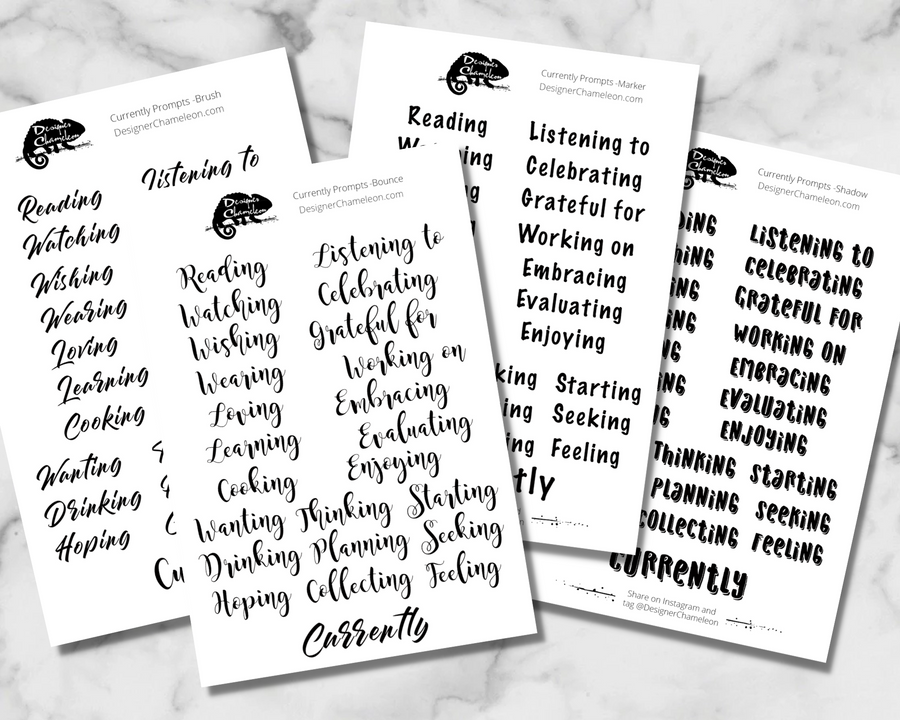 Designer
Chameleon
Currently Prompts -Brush
DesignerChameleon.com
Listening to
Reading
Watching
Wishing
Wearing
Loving
Learning
Cooking
Wanting
Drinking
Hoping
Cu
Designer
Chameleon
Currently Prompts -Bounce
DesignerChameleon.com
Reading Listening to
Watching Celebrating
Wishing Grateful for
Wearing Working on
Loving Embracing
Learning Evaluating
Cooking Enjoying
Wanting Thinking Starting
Drinking Planning Seeking
Hoping Collecting Feeling
Currently
Designer
Chameleon
Currently Prompts -Marker
DesignerChameleon.com
Reading Listening to
Celebrating
Grateful for
Working on
Embracing
Evaluating
Enjoying
king Starting
ing Seeking
ing Feeling
tly
Designer
Chameleon
Currently Prompts -Shadow
DesignerChameleon.com
DING Listening to
HING Celebrating
ING Grateful for
ING Working on
NG Embracing
ING Evaluating
NG Enjoying
Thinking Starting
Planning Seeking
Collecting Feeling
Currently
Share on Instagram and
tag @DesignerChameleon